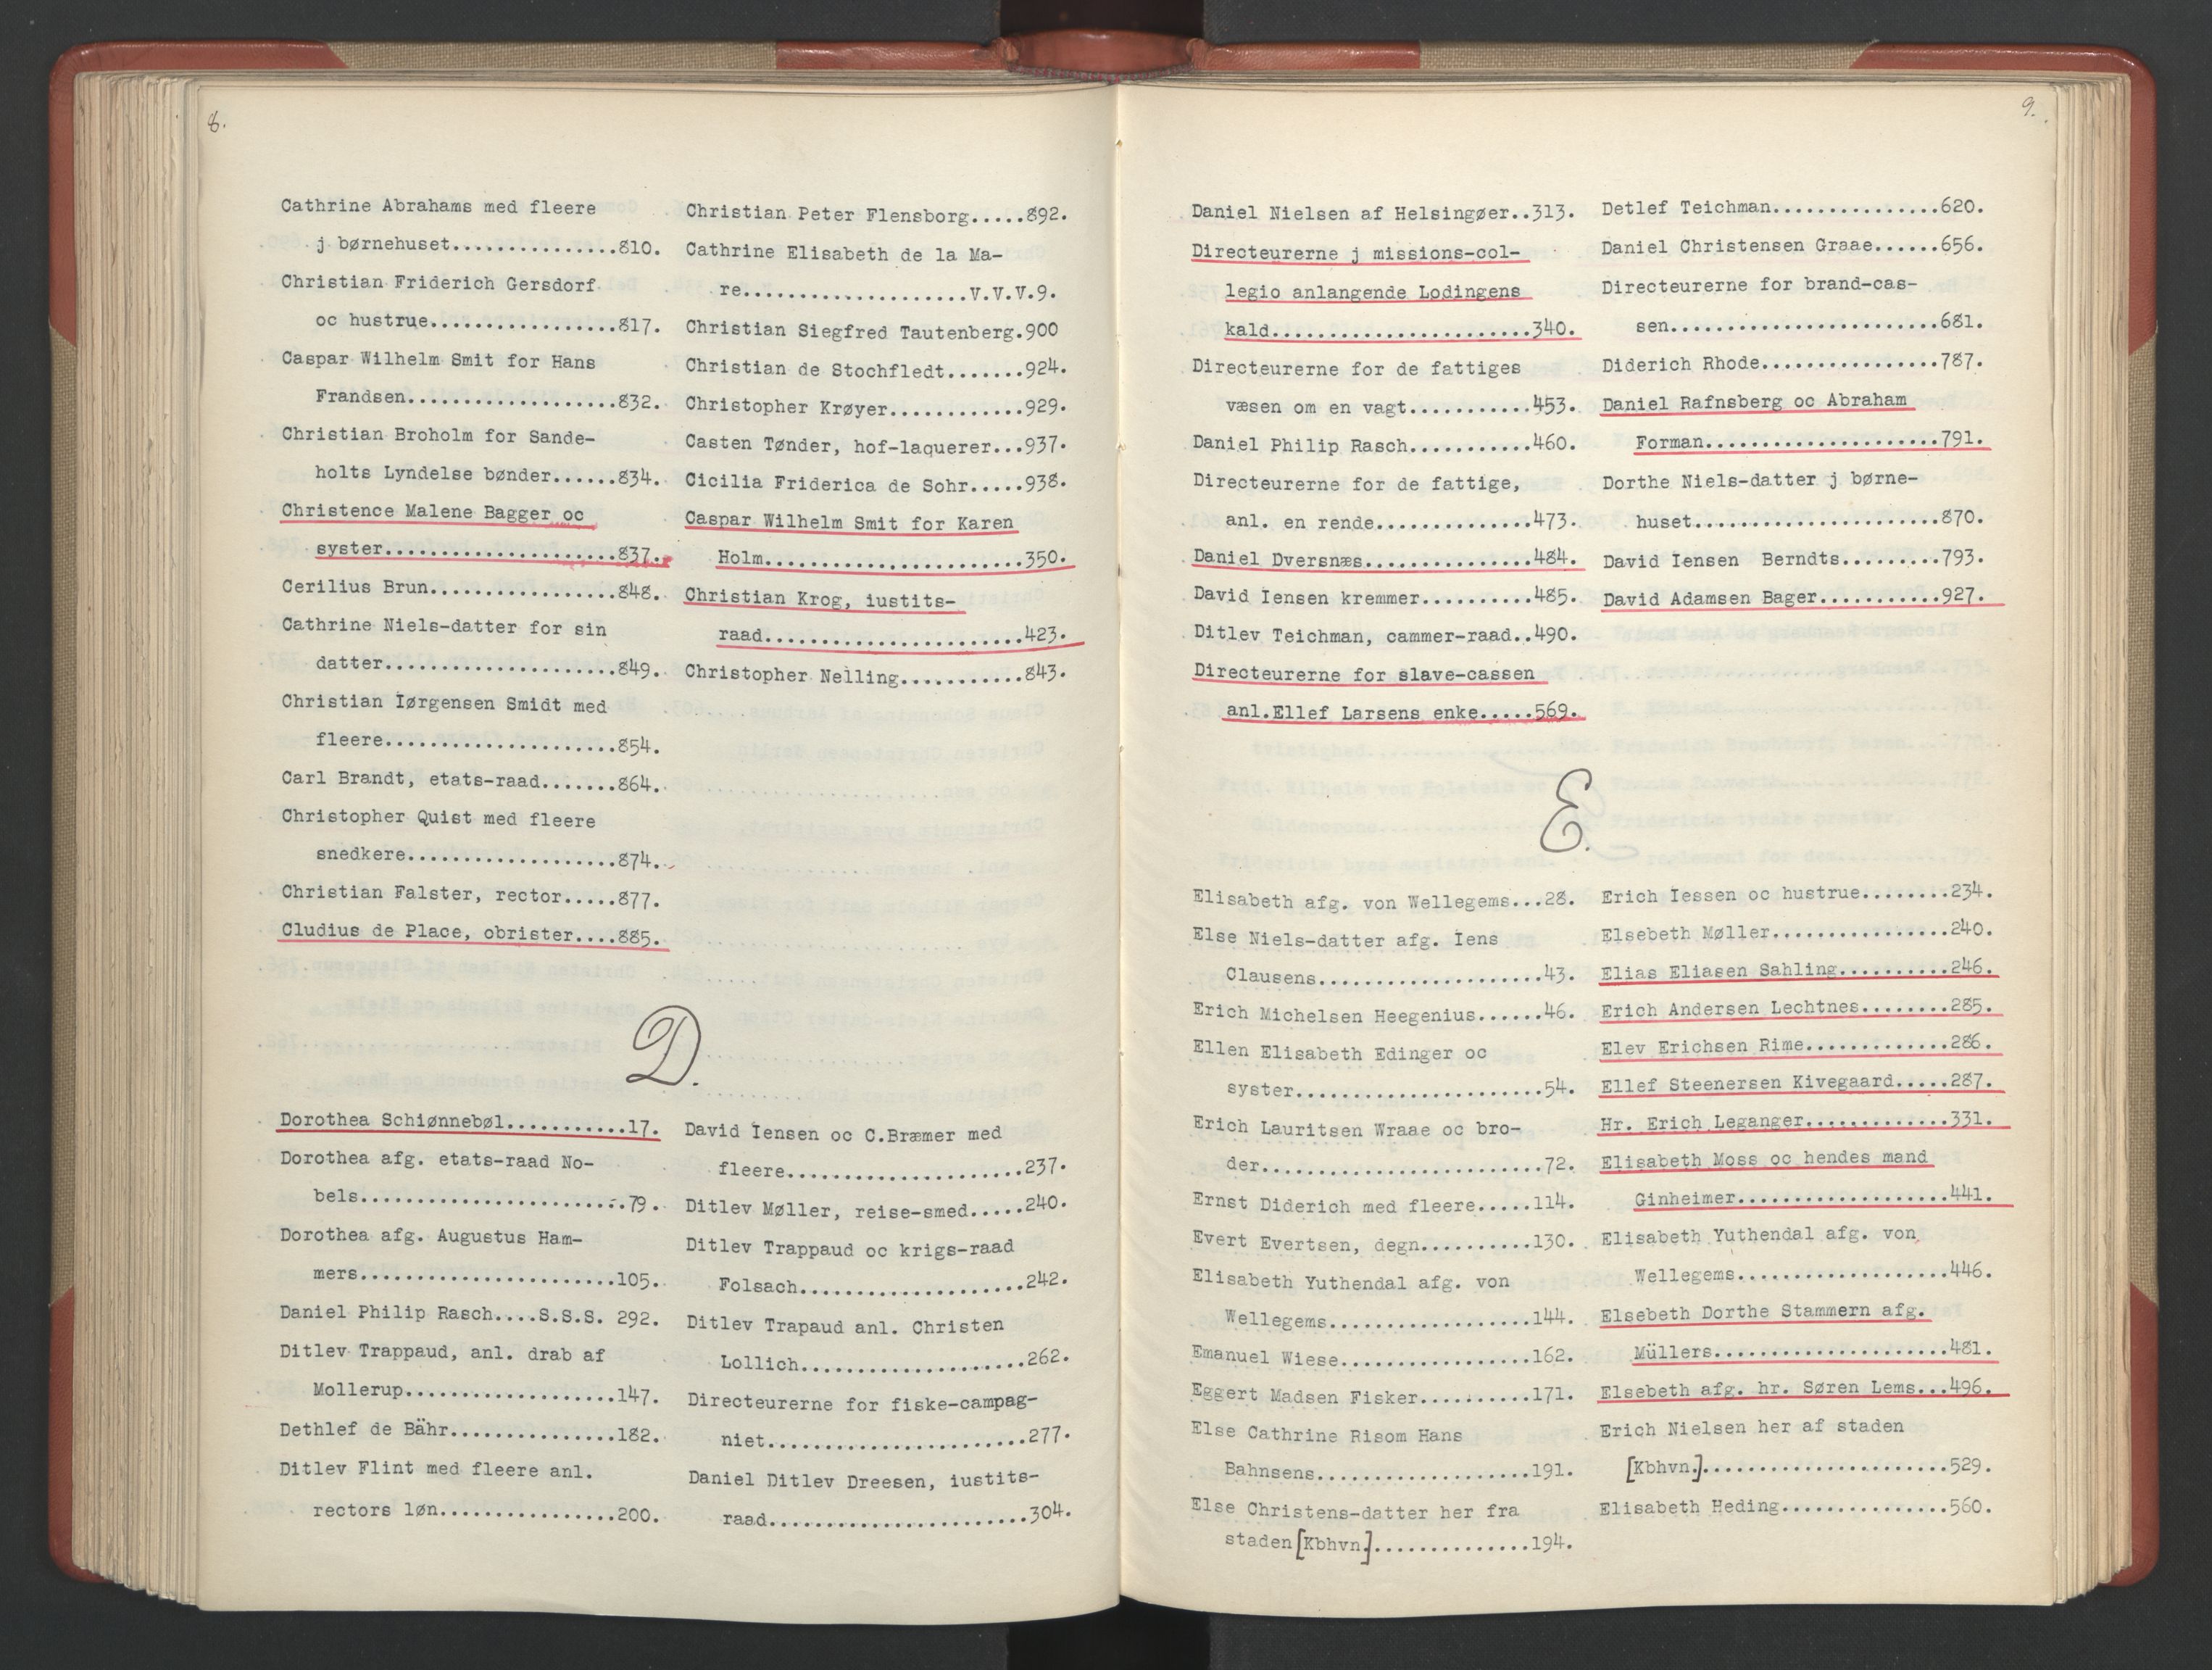 8.
Cathrine Abrahams med fleere
j børnehuset...............810.
Christian Friderich Gersdorf
oc hustrue.................817.
Caspar Wilhelm Smit for Hans
Frandsen...................832.
Christian Broholm for Sande-
holts Lyndelse bønder......834.
Christence Malene Bagger oc
syster.....................837.
Cerilius Brun.................848.
Cathrine Niels-datter for sin
datter.....................849.
Christian Iørgensen Smidt med
fleere.....................854.
Carl Brandt, etats-raad.......864.
Christopher Quist med fleere
snedkere...................874.
Christian Falster, rector.....877.
Cludius de Place, obrister....885.
Christian Peter Flensborg.....892.
Cathrine Elisabeth de la Ma-
re....................V.V.V.9.
Christian Siegfred Tautenberg.900
Christian de Stochfledt.......924.
Christopher Krøyer............929.
Casten Tønder, hof-laquerer...937.
Cicilia Friderica de Sohr.....938.
Caspar Wilhelm Smit for Karen
Holm.......................350.
Christian Krog, iustits-
raad.......................423.
Christopher Nelling...........843.
D.
Dorothea Schiønnebøl...........17.
Dorothea afg. etats-raad No-
bels........................79.
Dorothea afg. Augustus Ham-
mers.......................105.
Daniel Philip Rasch....S.S.S. 292.
Ditlev Trappaud, anl. drab af
Mollerup...................147.
Dethlef de Bähr...............182.
Ditlev Flint med fleere anl.
rectors løn................200.
David Iensen oc C.Bræmer med
fleere.....................237.
Ditlev Møller, reise-smed.....240.
Ditlev Trappaud oc krigs-raad
Folsach....................242.
Ditlev Trapaud anl. Christen
Lollich....................262.
Directeurerne for fiske-campag-
niet.......................277.
Daniel Ditlev Dreesen, iustits-
raad.......................304.
9.
Daniel Nielsen af Helsingøer..313.
Directeurerne j missions-col-
legio anlangende Lodingens
kald.......................340.
Directeurerne for de fattiges
væsen om en vagt...........453.
Daniel Philip Rasch...........460.
Directeurerne for de fattige,
anl. en rende..............473.
Daniel Dversnæs...............484.
David Iensen kremmer..........485.
Ditlev Teichman, cammer-raad..490.
Directeurerne for slave-cassen
anl.Ellef Larsens enke.....569.
Detlef Teichman...............620.
Daniel Christensen Graae......656.
Directeurerne for brand-cas-
sen........................681.
Diderich Rhode................787.
Daniel Rafnsberg oc Abraham
Forman.....................791.
Dorthe Niels-datter j børne-
huset......................870.
David Iensen Berndts.........793.
David Adamsen Bager...........927.
E.
Elisabeth afg. von Wellegems...28.
Else Niels-datter afg. Iens
Clausens....................43.
Erich Michelsen Heegenius......46.
Ellen Elisabeth Edinger oc
syster......................54.
Erich Lauritsen Wraae oc bro-
der.........................72.
Ernst Diderich med fleere.....114.
Evert Evertsen, degn..........130.
Elisabeth Yuthendal afg. von
Wellegems..................144.
Emanuel Wiese.................162.
Eggert Madsen Fisker..........171.
Else Cathrine Risom Hans
Bahnsens...................191.
Else Christens-datter her fra
staden[Kbhvn.]..............194.
Erich Iessen oc hustrue........234.
Elsebeth Møller................240.
Elias Eliasen Sahling..........246.
Erich Andersen Lechtnes........285.
Elev Erichsen Rime.............286.
Ellef Steenersen Kivegaard.....287.
Hr. Erich Leganger.............331.
Elisabeth Moss oc hendes mand
Ginheimer...................441.
Elisabeth Yuthendal afg. von
Wellegems...................446.
Elsebeth Dorthe Stammern afg.
Müllers.....................481.
Elsebeth afg. hr. Søren Lems...496.
Erich Nielsen her af staden
[Kbhvn.]......................529.
Elisabeth Heding...............560.